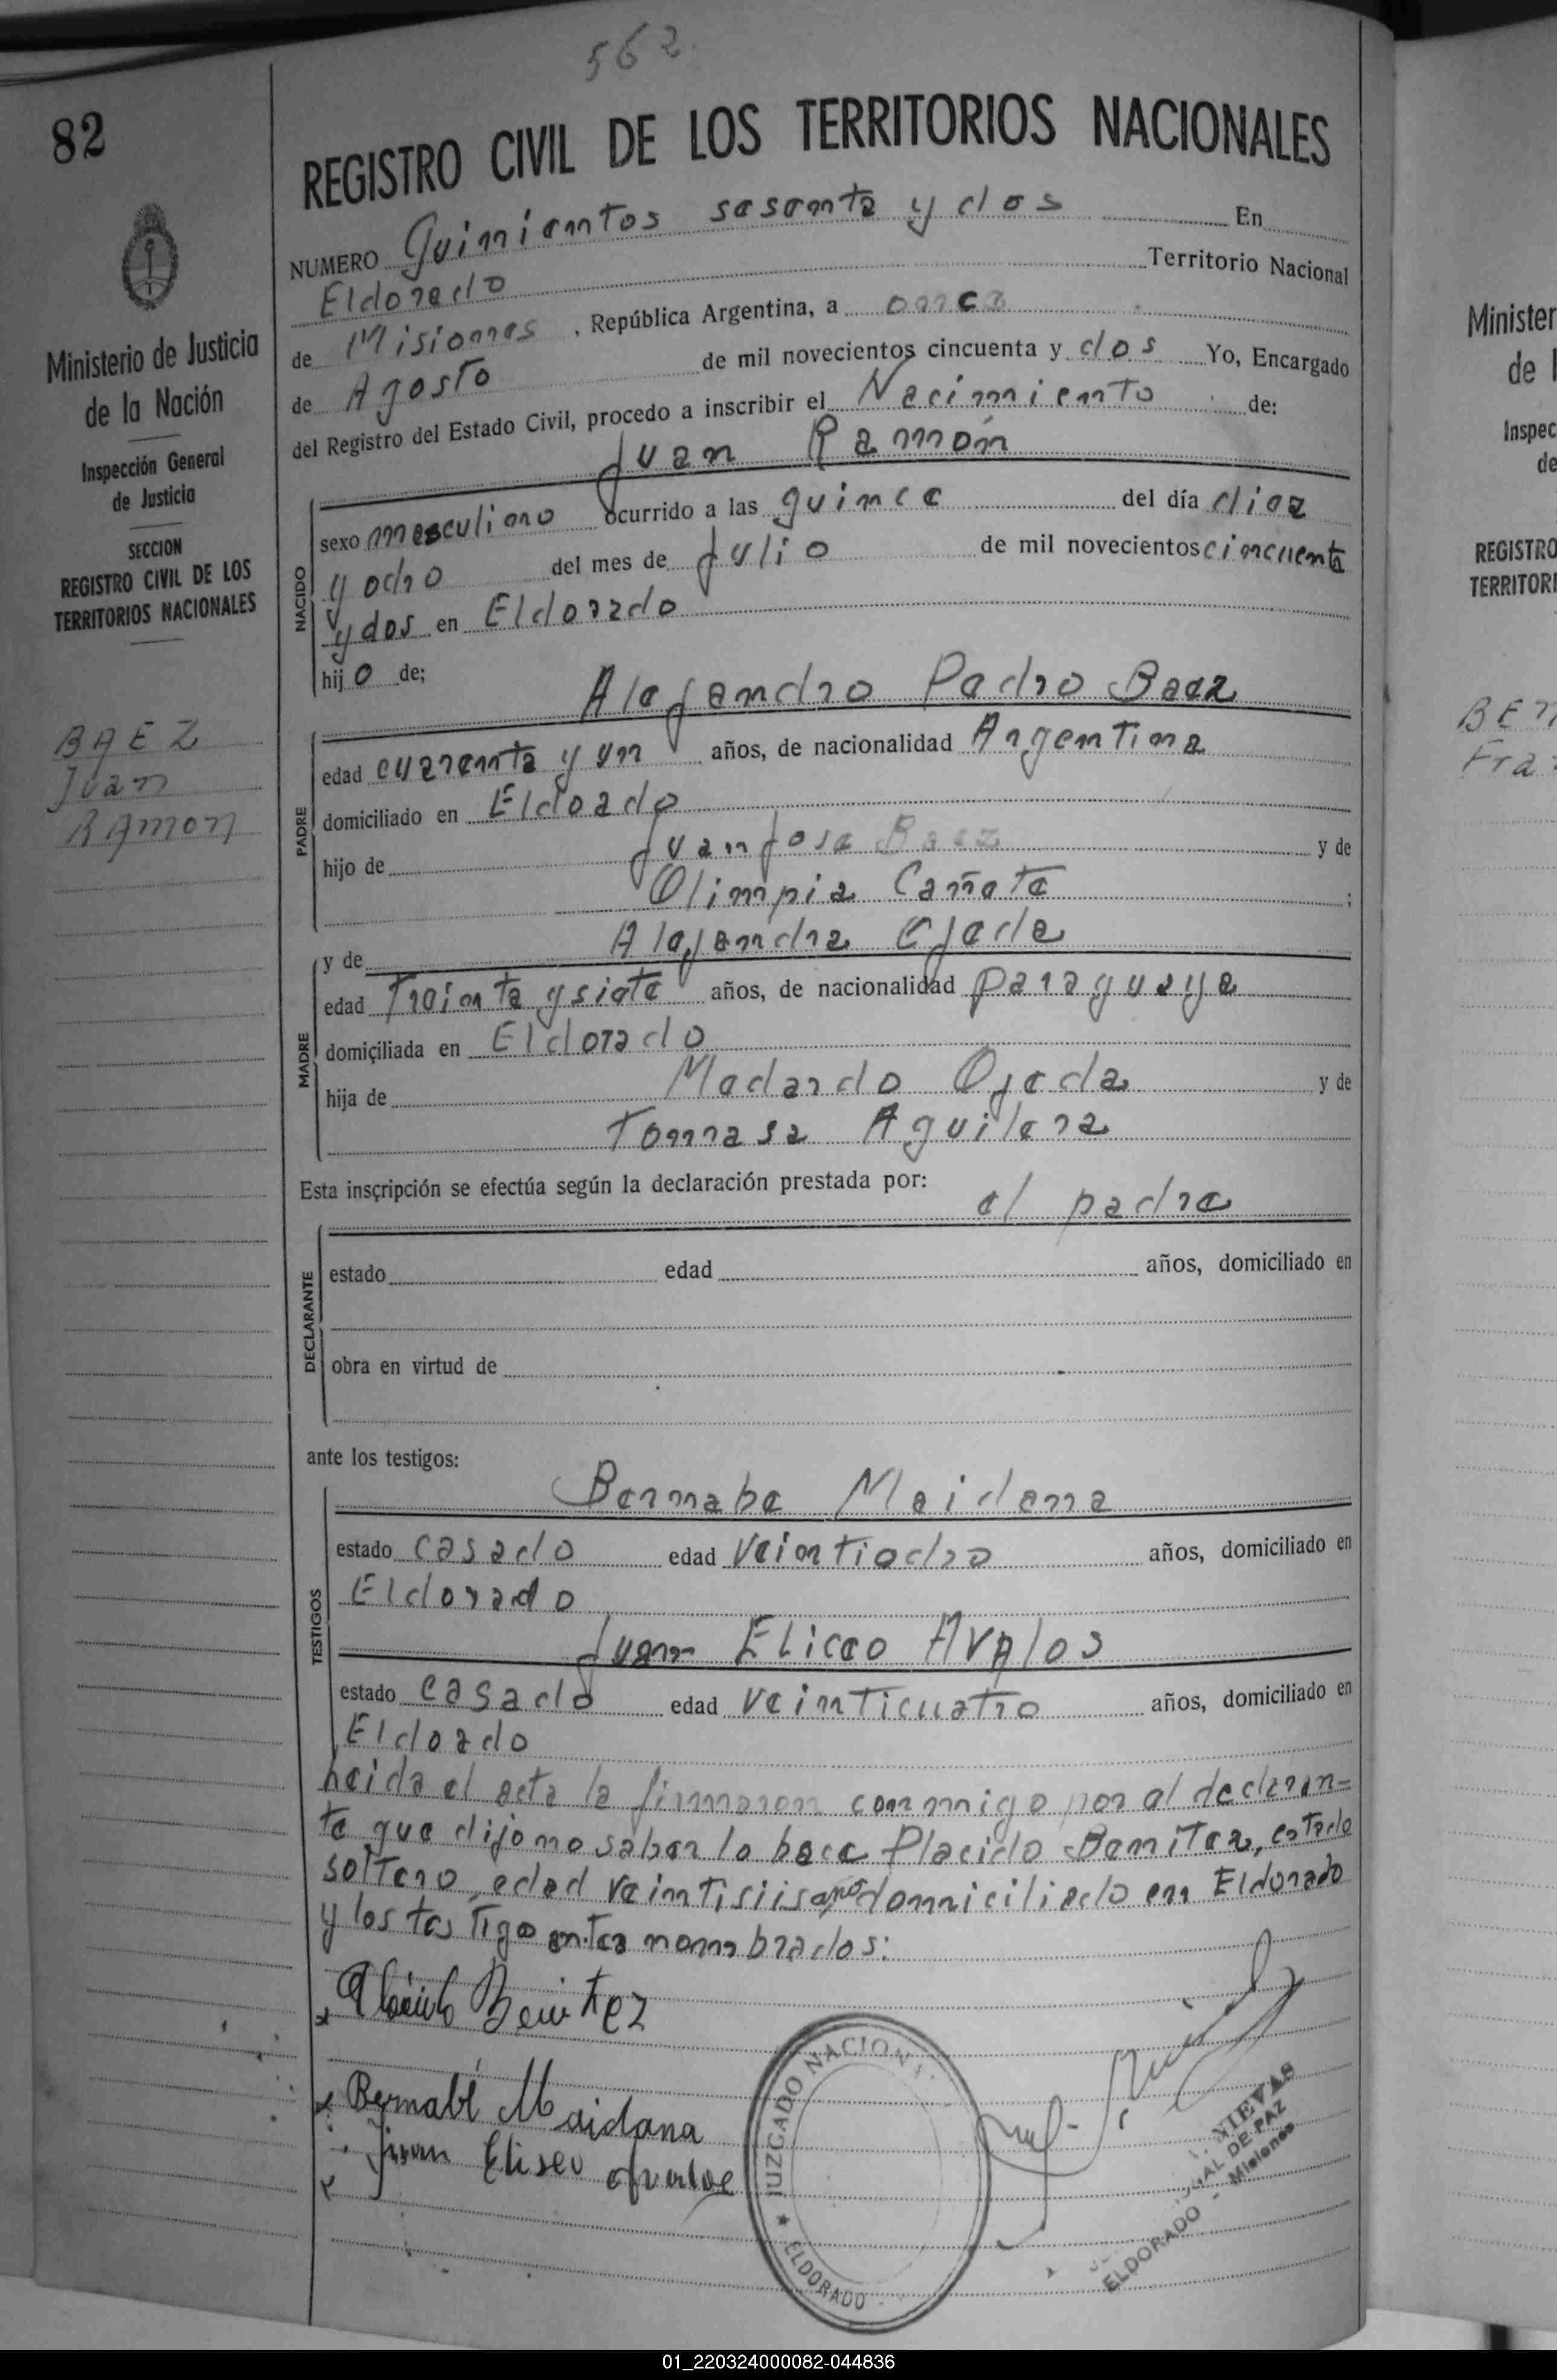 562
82
REGISTRO CIVIL DE LOS TERRITORIOS NACIONALES
NUMERO Quinientos sesenta y dos En
Eldorado Territorio Nacional
de Misiones, República Argentina, a once
de Agosto de mil novecientos cincuenta y dos Yo, Encargado
del Registro del Estado Civil, procedo a inscribir el Nacimiento de:
Juan Ramón
NACIDO
sexo masculino ocurrido a las quince del día diez
y ocho del mes de Julio de mil novecientos cincuenta
y dos en Eldorado
hijo de;
Alejandro Pedro Baez
PADRE
edad cuarenta y un años, de nacionalidad Argentina
domiciliado en Eldoado
hijo de Juan Jose Baez y de
Olimpia Cañete ;
y de Alejandra Ojeda
MADRE
edad Treinta y siete años, de nacionalidad paraguaya
domiciliada en Eldorado
hija de Medardo Ojeda y de
Tomasa Aguilera
Esta inscripción se efectúa según la declaración prestada por: el padre
DECLARANTE
estado edad años, domiciliado en
obra en virtud de
ante los testigos:
Bernabe Maidana
TESTIGOS
estado casado edad veintiocho años, domiciliado en
Eldorado
Juan Eliceo AVAlos
estado casado edad veinticuatro años, domiciliado en
Eldoado
heida el acta la firmaron conmigo por el declaran=
te que dijo no saber lo hace Placido Benitez, estado
soltero, edad veintisiis años domiciliado en Eldorado
y los testigo antes nombrados:
Placido Benitez
Bernabé Maidana
Juan Eliseo Avalos
JUZGADO NACIONA
★ ELDORADO
NIEVAS
DE PAZ
ELDORADO - Misiones
Ministerio de Justicia
de la Nación
Inspección General
de Justicia
SECCION
REGISTRO CIVIL DE LOS
TERRITORIOS NACIONALES
BAEZ
Juan
RAmon
Minister
de l
Inspec
de
REGISTRO
TERRITORI
BEn
Fra
01_220324000082-044836